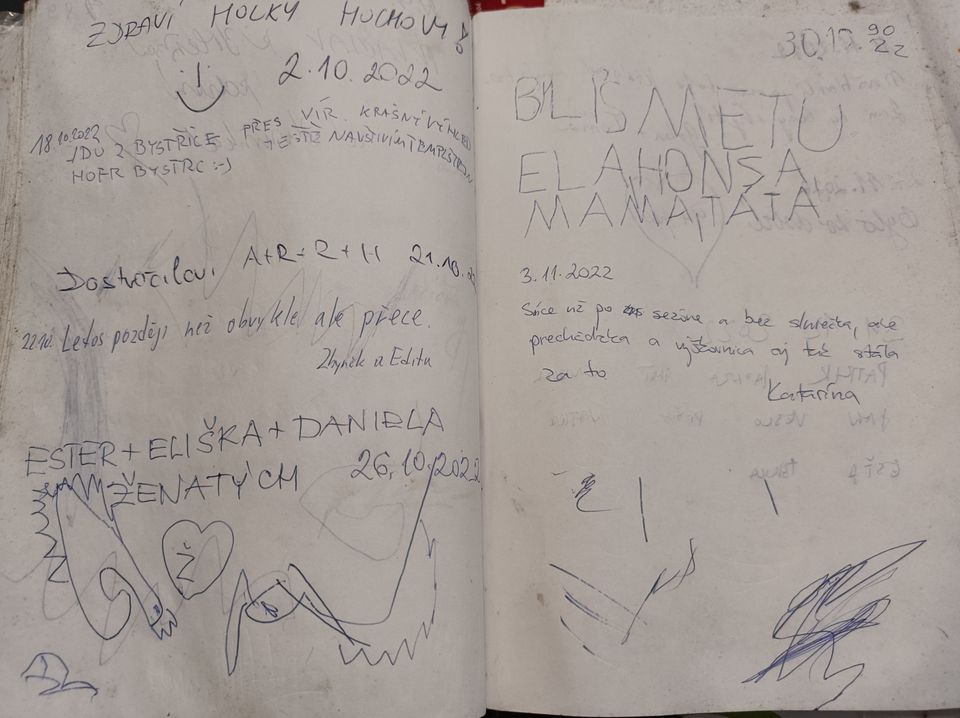 ZDRAVÍ HOLKY
2.10.2022
18.10.2022
JDU Z BYSTŘICE PŘES VÍR. KRÁSNÝ VÝHLED
JEŠTĚ NAVŠTIVÍM TEMPLŠTEJN
HOFR BYSTRC :-)
A+R+R+H 21.10.
22.10. Letos později než obvykle ale přece.
Zbyněk a Edita
ESTER + ELIŠKA + DANIELA
ŽENATÝCH 26.10.2022
Ž
BYLI SME TU
ELA HONSA
MAMA TATA
3.11.2022
Síce už po sezóne a bez slniečka, ale
prechádzka a výšľapnica aj tak stála
za to.
Katarína